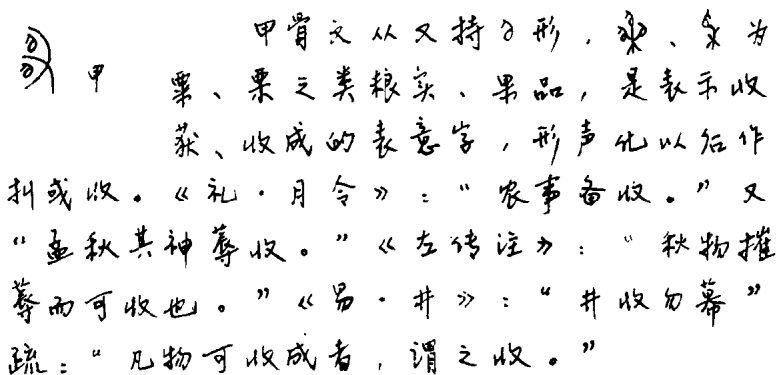 甲 甲骨文从又持形，、为
粟、栗之类粮实、果品，是表示收
获、收成的表意字，形声化以后作
抖或收。《礼·月令》："农事备收。"又
"孟秋其神蓐收。"《左传注》："秋物摧
蓐而可收也。"《易·井》："井收勿幕"
疏："凡物可收成者，谓之收。"